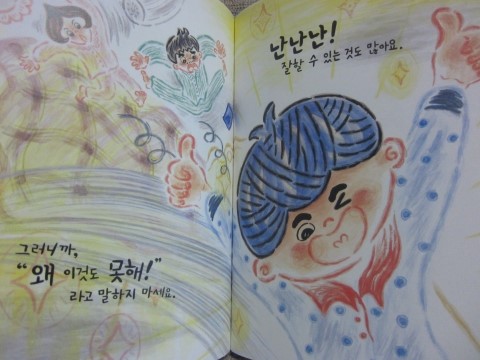 그러니까,
"왜 이것도 못해!"
라고 말하지 마세요.
난난난!
잘할 수 있는 것도 많아요.